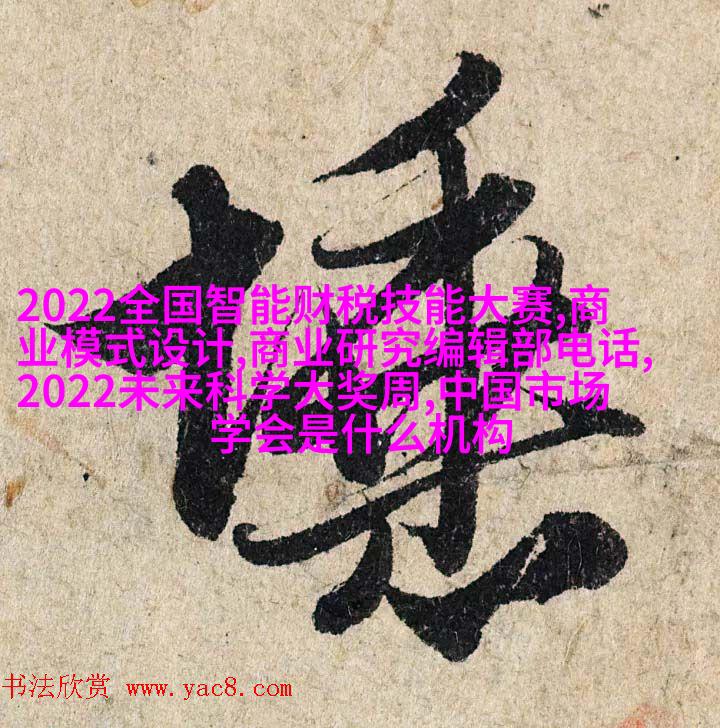 2022全国智能财税技能大赛,商
业模式设计,商业研究编辑部电话,
2022未来科学大奖周,中国市场
学会是什么机构
书法欣赏 www.yac8.com